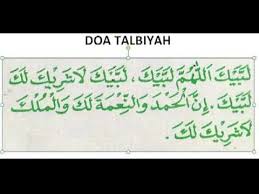 DOA TALBIYAH
لَبَّيْكَ اللَّهُمَّ لَبَّيْكَ ، لَبَّيْكَ لَاشَرِيْكَ لَكَ
لَبَّيْكَ . إِنَّ الْحَمْدَ وَالنِّعْمَةَ لَكَ وَالْمُلْكَ
لَاشَرِيْكَ لَكَ .